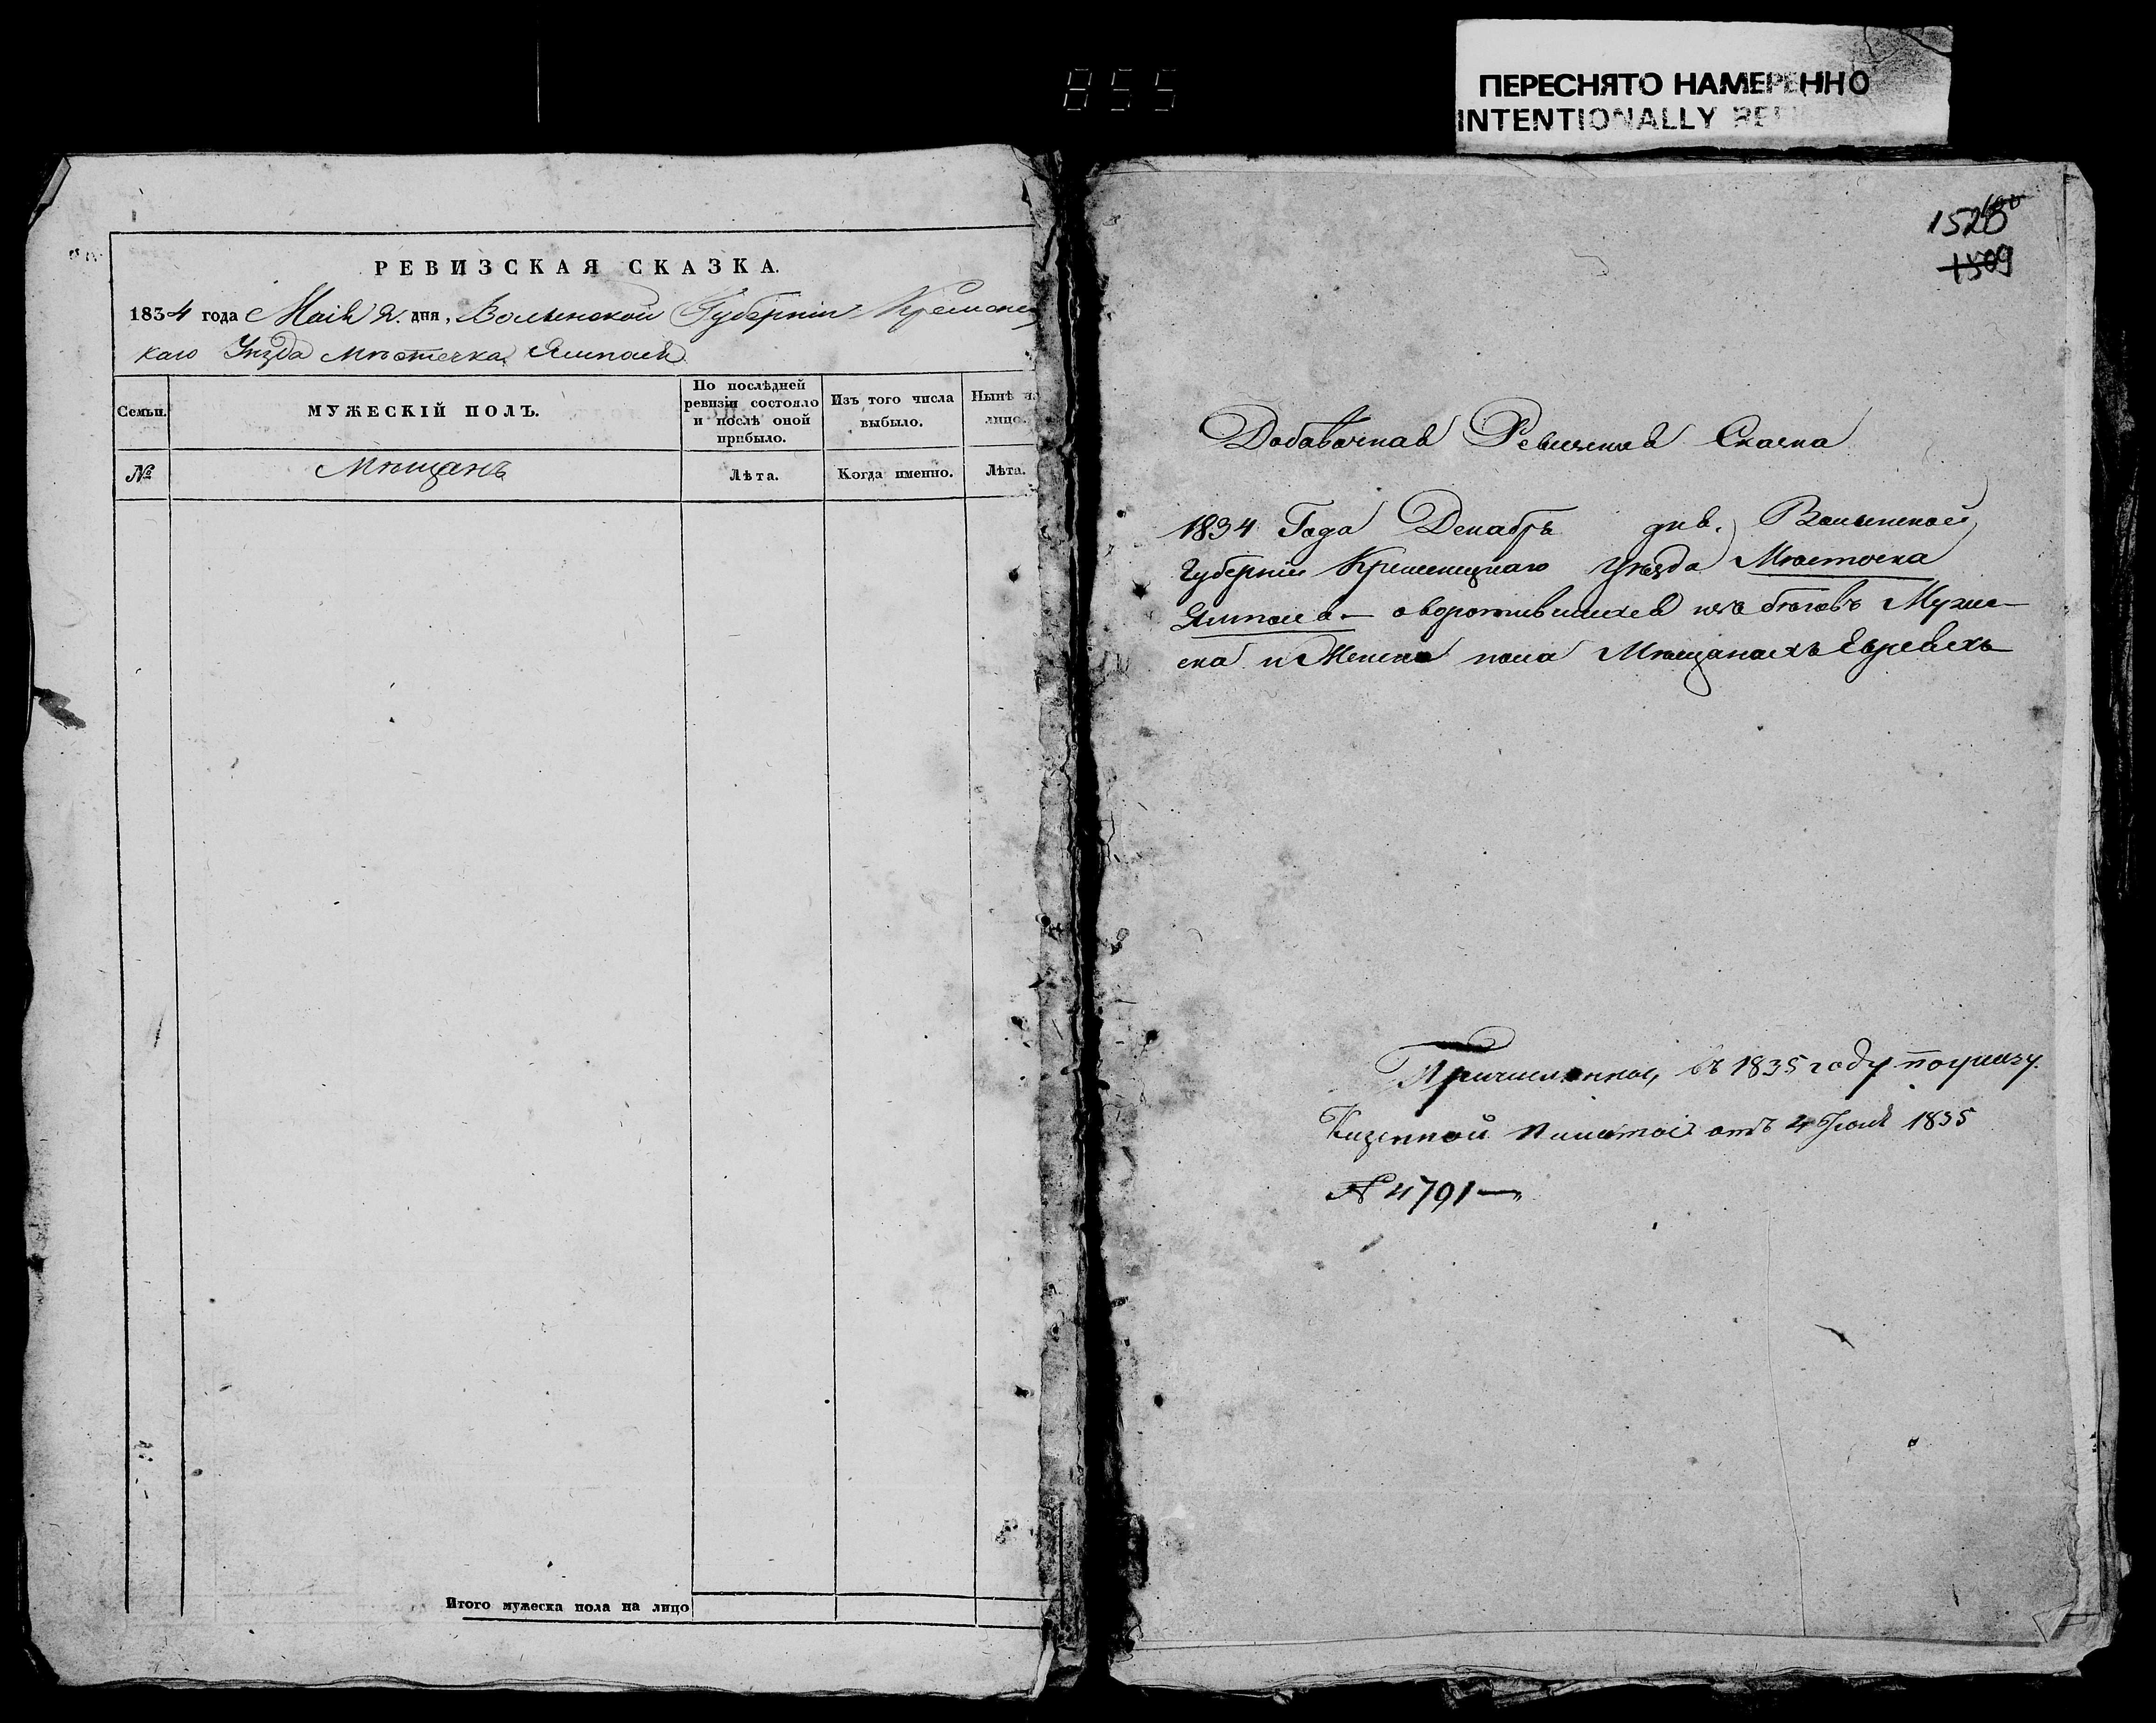 855
ПЕРЕСНЯТО НАМЕРЕННО
INTENTIONALLY
РЕВИЗСКАЯ СКАЗКА.
1834 года Маія 2. дня, Волынской Губерніи Кременец
каго Уѣзда мѣстечка Ямполя
Семьи.
МУЖЕСКІЙ ПОЛЪ.
По послѣдней ревизіи состояло и послѣ оной прибыло.
Изъ того числа выбыло.
Нынѣ на лицо.
№
Мѣщанъ
Лѣта.
Когда именно.
Лѣта.
Итого мужеска пола на лицо
1509
Добавочная Ревизская Сказка
1834 Года Декабръ дня. Волынской
Губерніи Кременецкаго Уѣзда Мѣстечка
Ямполя — о воротившихся изъ бѣговъ Мужес-
ка и Женска пола Мѣщанахъ Евреяхъ
Причисленная, въ 1835 году по указу
Казенной Палаты отъ 4 Іюля 1835
№ 4791 —